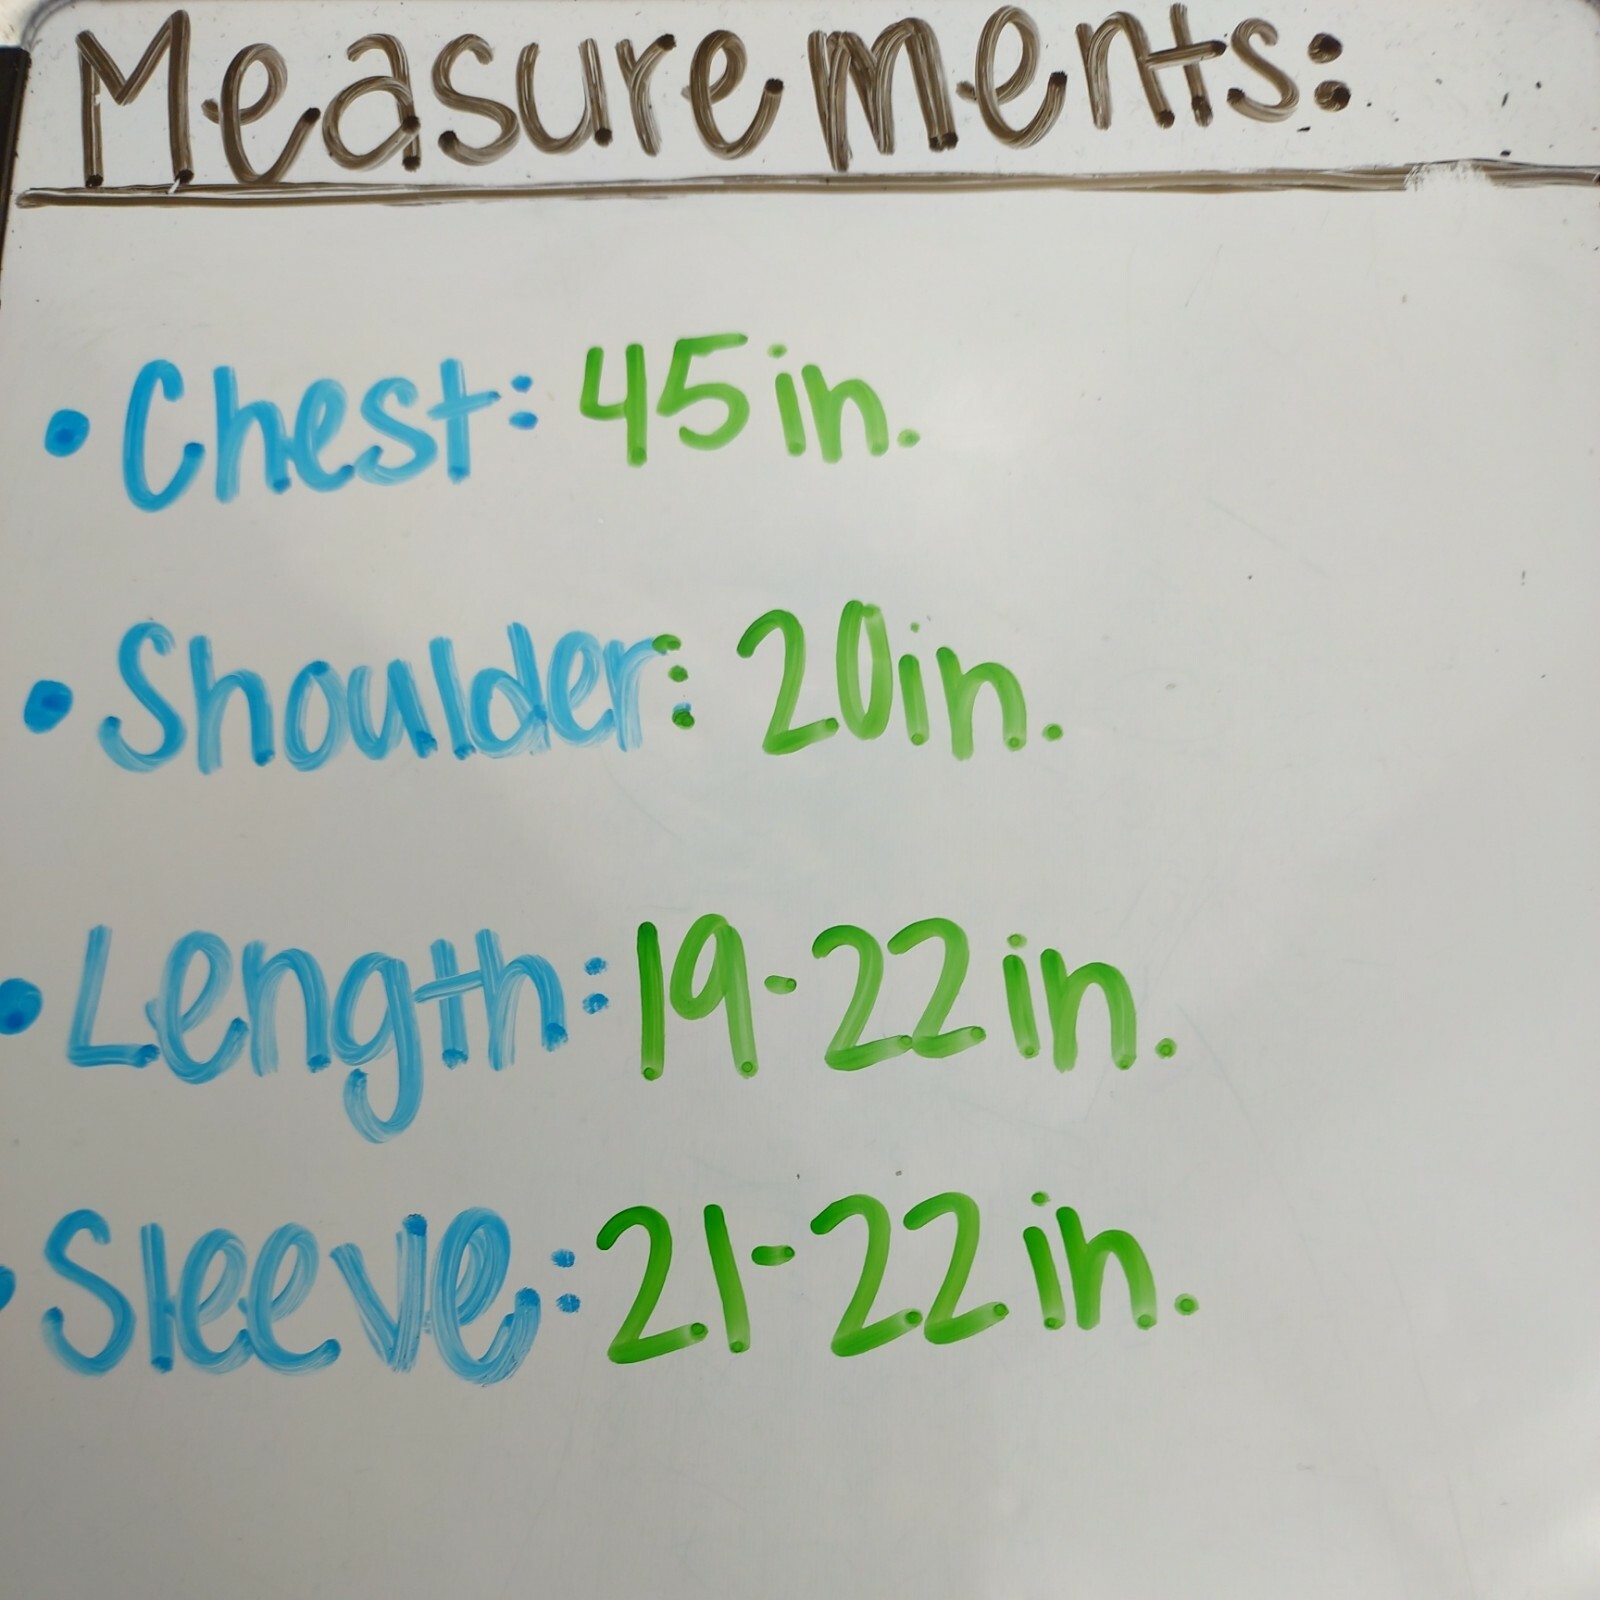 Measurements:
• Chest: 45 in.
• Shoulder: 20in.
• Length: 19-22 in.
• Sleeve: 21-22 in.